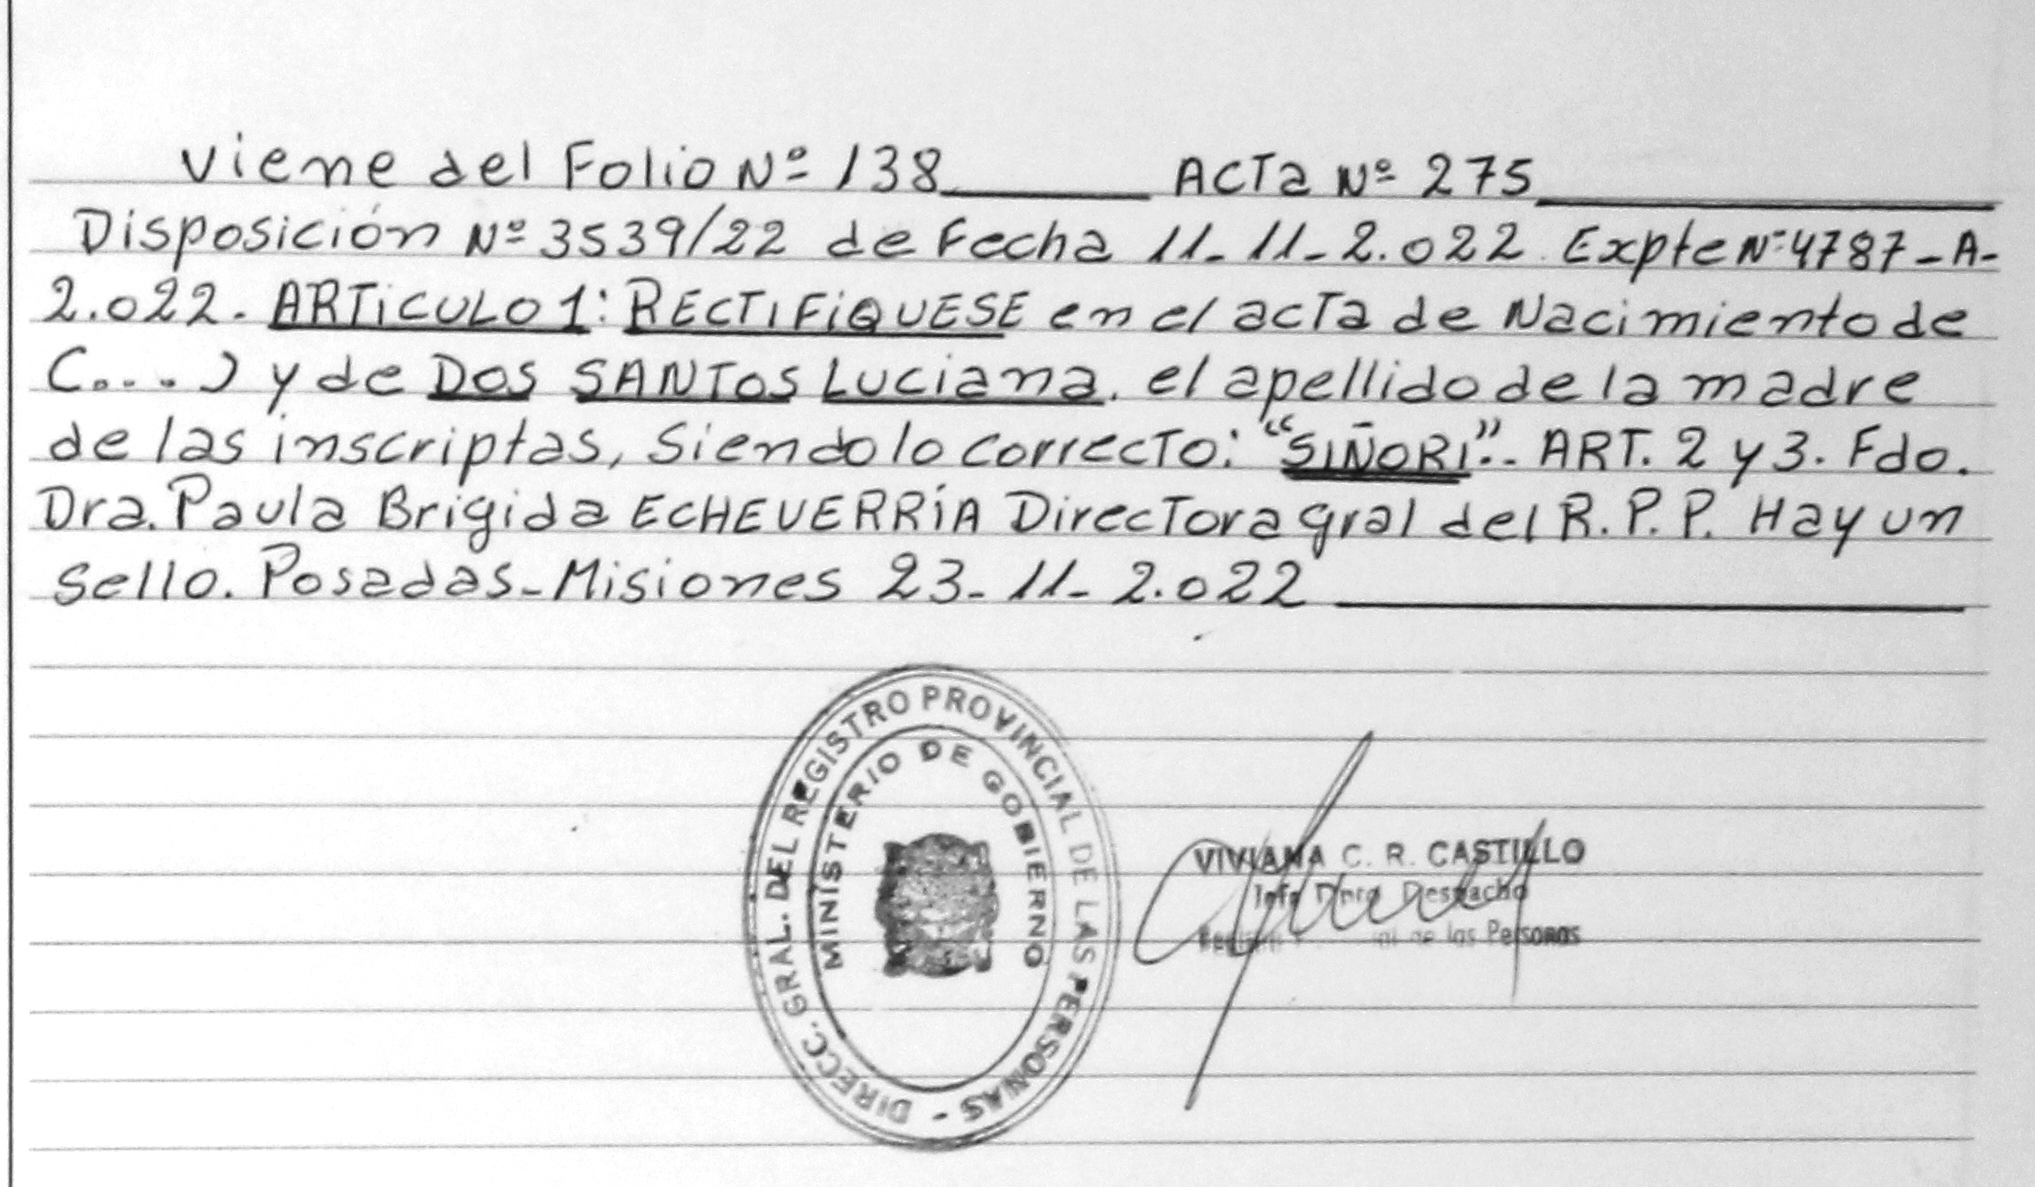 Viene del Folio Nº 138 ACTA Nº 275
Disposición Nº 3539/22 de Fecha 11-11-2.022 Expte Nº 4787-A-
2.022. ARTICULO 1: RECTIFIQUESE en el acta de Nacimiento de
(....) y de DOS SANTOS Luciana. el apellido de la madre
de las inscriptas, Siendo lo correcto: "SIÑORI".- ART. 2 y 3. Fdo.
Dra. Paula Brigida ECHEVERRÍA Directora gral del R.P.P. Hay un
Sello. Posadas-Misiones 23-11-2.022
DIRECC. GRAL. DEL REGISTRO PROVINCIAL DE LAS PERSONAS -
MINISTERIO DE GOBIERNO
VIVIANA C. R. CASTILLO
Despacho
de las Personas